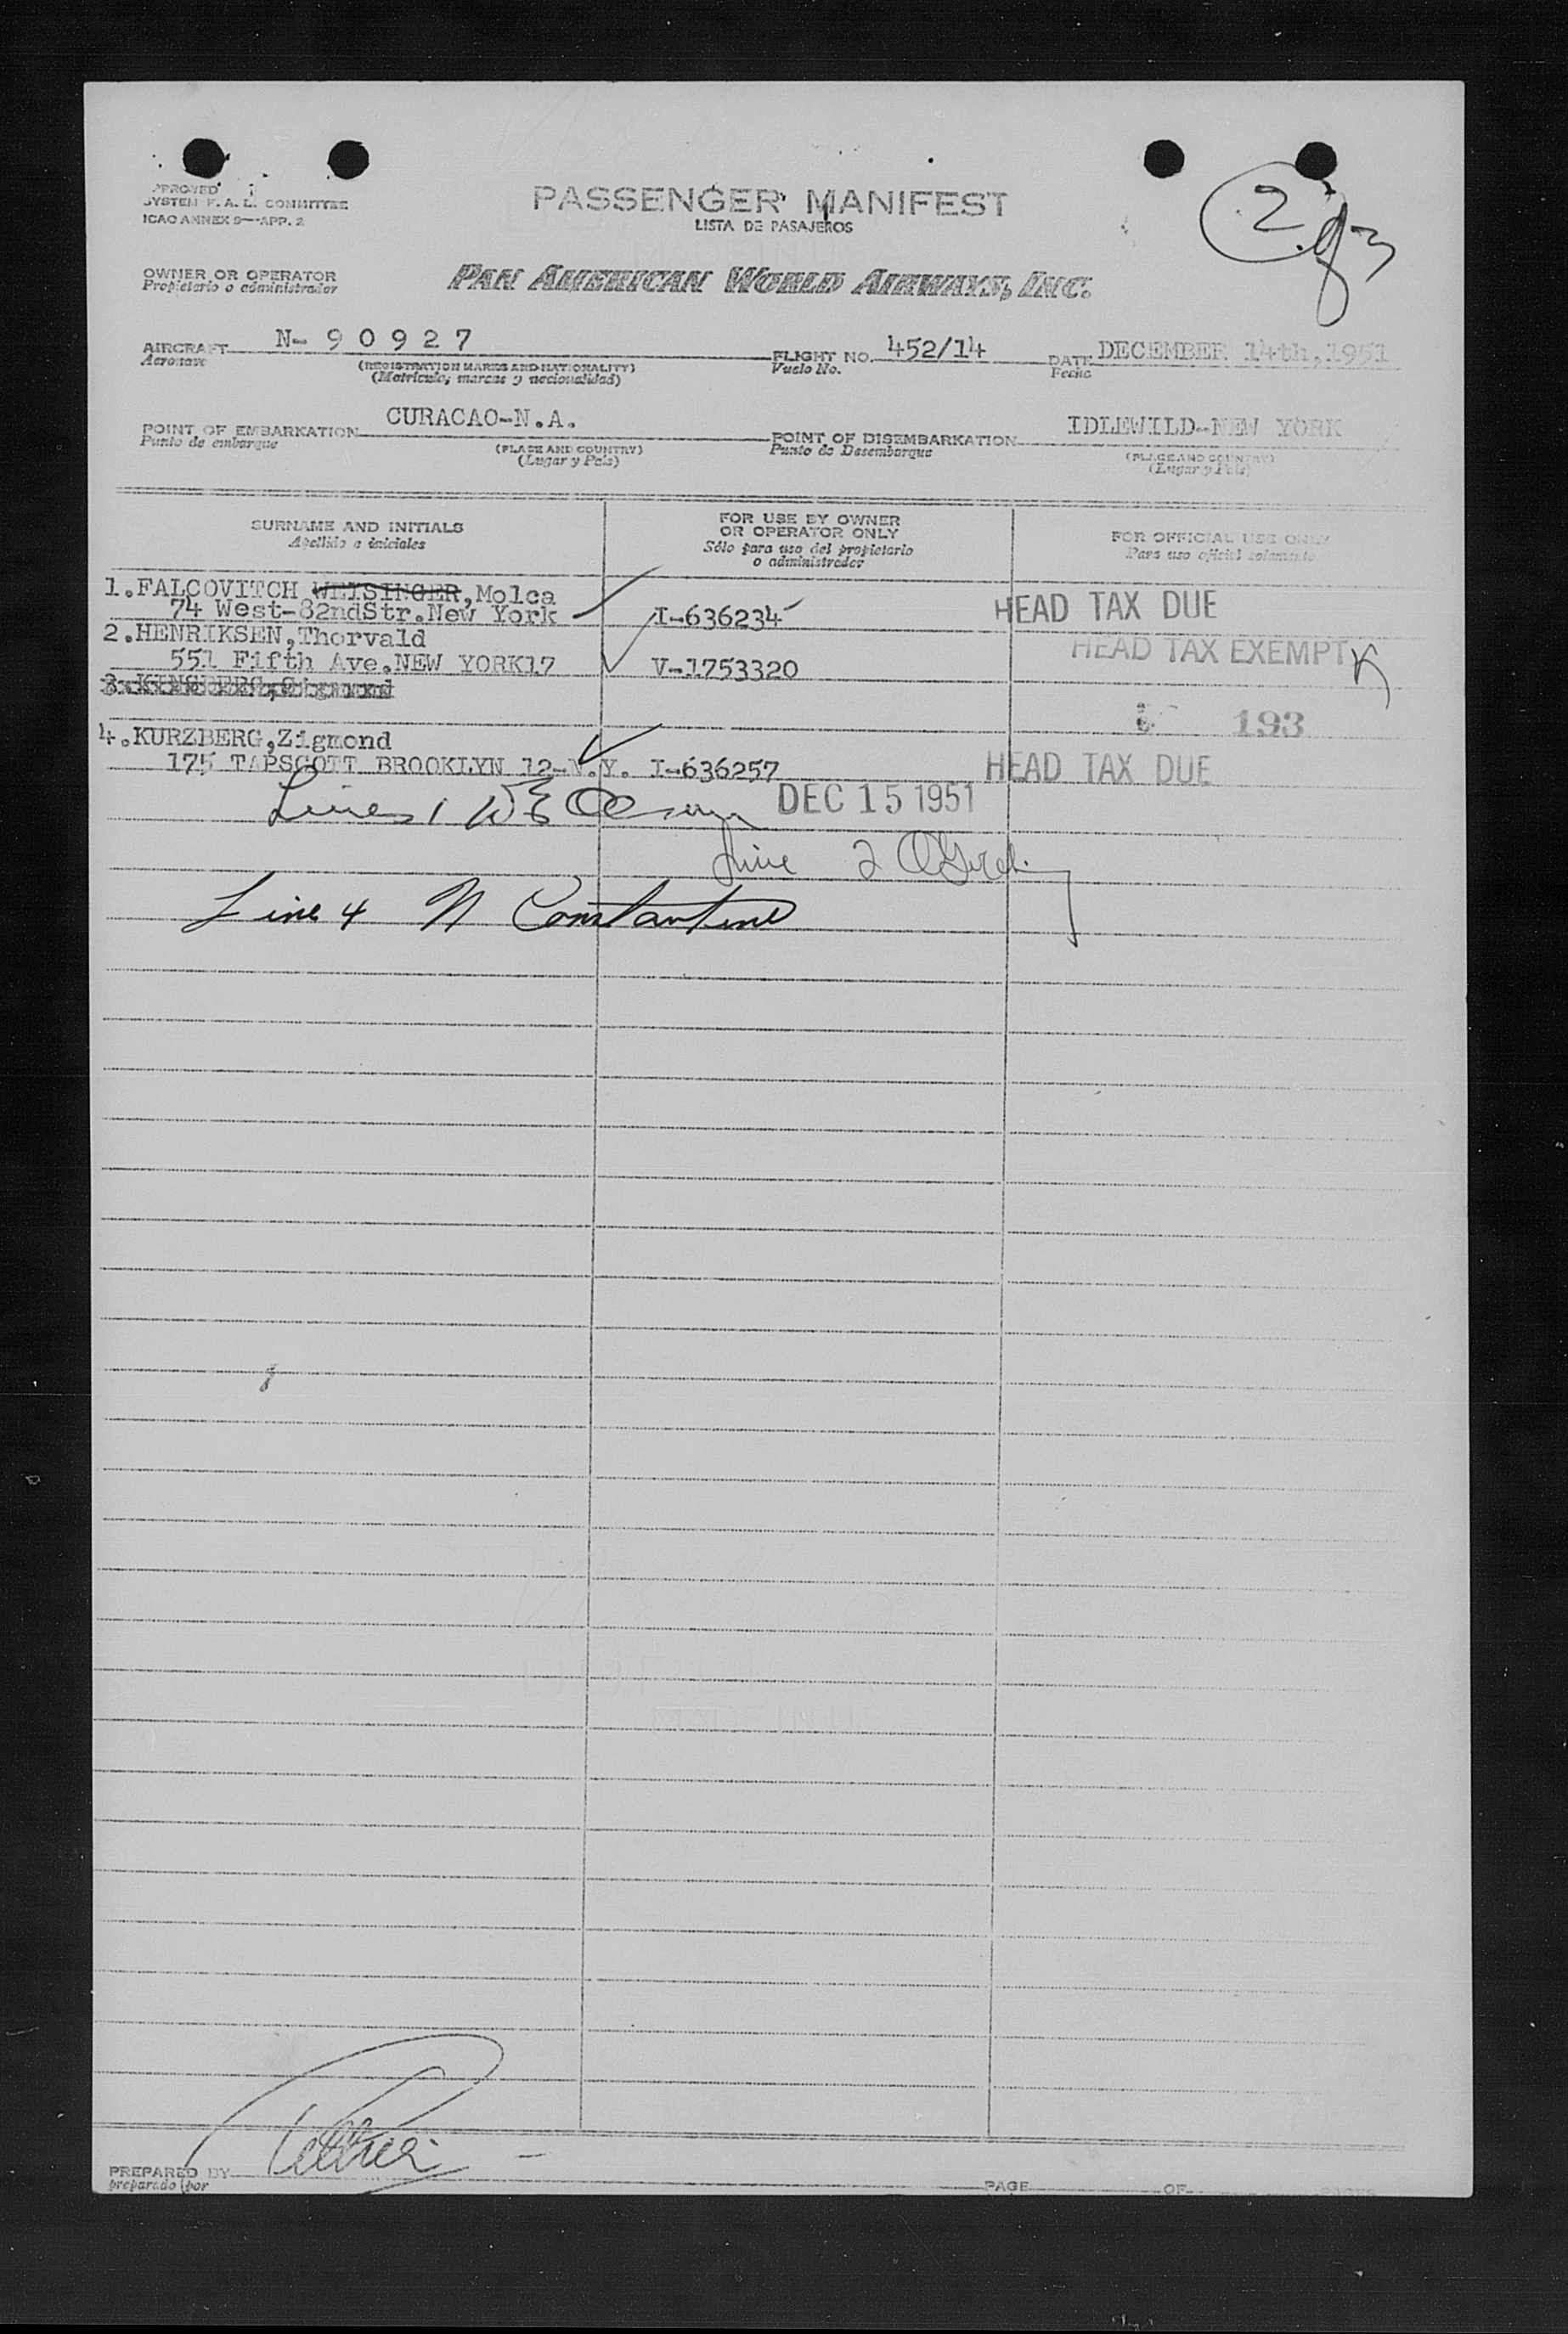 PASSENGER MANIFEST
LISTA DE PASAJEROS
SYSTEM F. A. L. COMMITTEE
ICAO ANNEX 9—APP. 2
2
OWNER OR OPERATOR
Propietario o administrador
PAN AMERICAN WORLD AIRWAYS, INC.
AIRCRAFT N- 9 0 9 2 7 FLIGHT NO. 452/14 DATE DECEMBER 14th, 1951
Aeronave (REGISTRATION MARKS AND NATIONALITY) Vuelo No. Fecha
(Matrícula, marcas y nacionalidad)
POINT OF EMBARKATION CURACAO-N.A. POINT OF DISEMBARKATION IDLEWILD-NEW YORK
Punto de embarque (PLACE AND COUNTRY) Punto de Desembarque (PLACE AND COUNTRY)
(Lugar y País) (Lugar y País)
SURNAME AND INITIALS FOR USE BY OWNER OR OPERATOR ONLY FOR OFFICIAL USE ONLY
Apellido e iniciales Sólo para uso del propietario o administrador Para uso oficial solamente
1.FALCOVITCH WEISINGER,Molca
74 West-82ndStr.New York I-636234 HEAD TAX DUE
2.HENRIKSEN,Thorvald
551 Fifth Ave.NEW YORK17 V-1753320 HEAD TAX EXEMPT
193
4.KURZBERG,Zigmond
175 TAPSCOTT BROOKLYN 12-N.Y. I-636257 HEAD TAX DUE
DEC 15 1951
Line 2
Line 4 N Constantine
PREPARED BY PAGE OF PAGES
preparado por